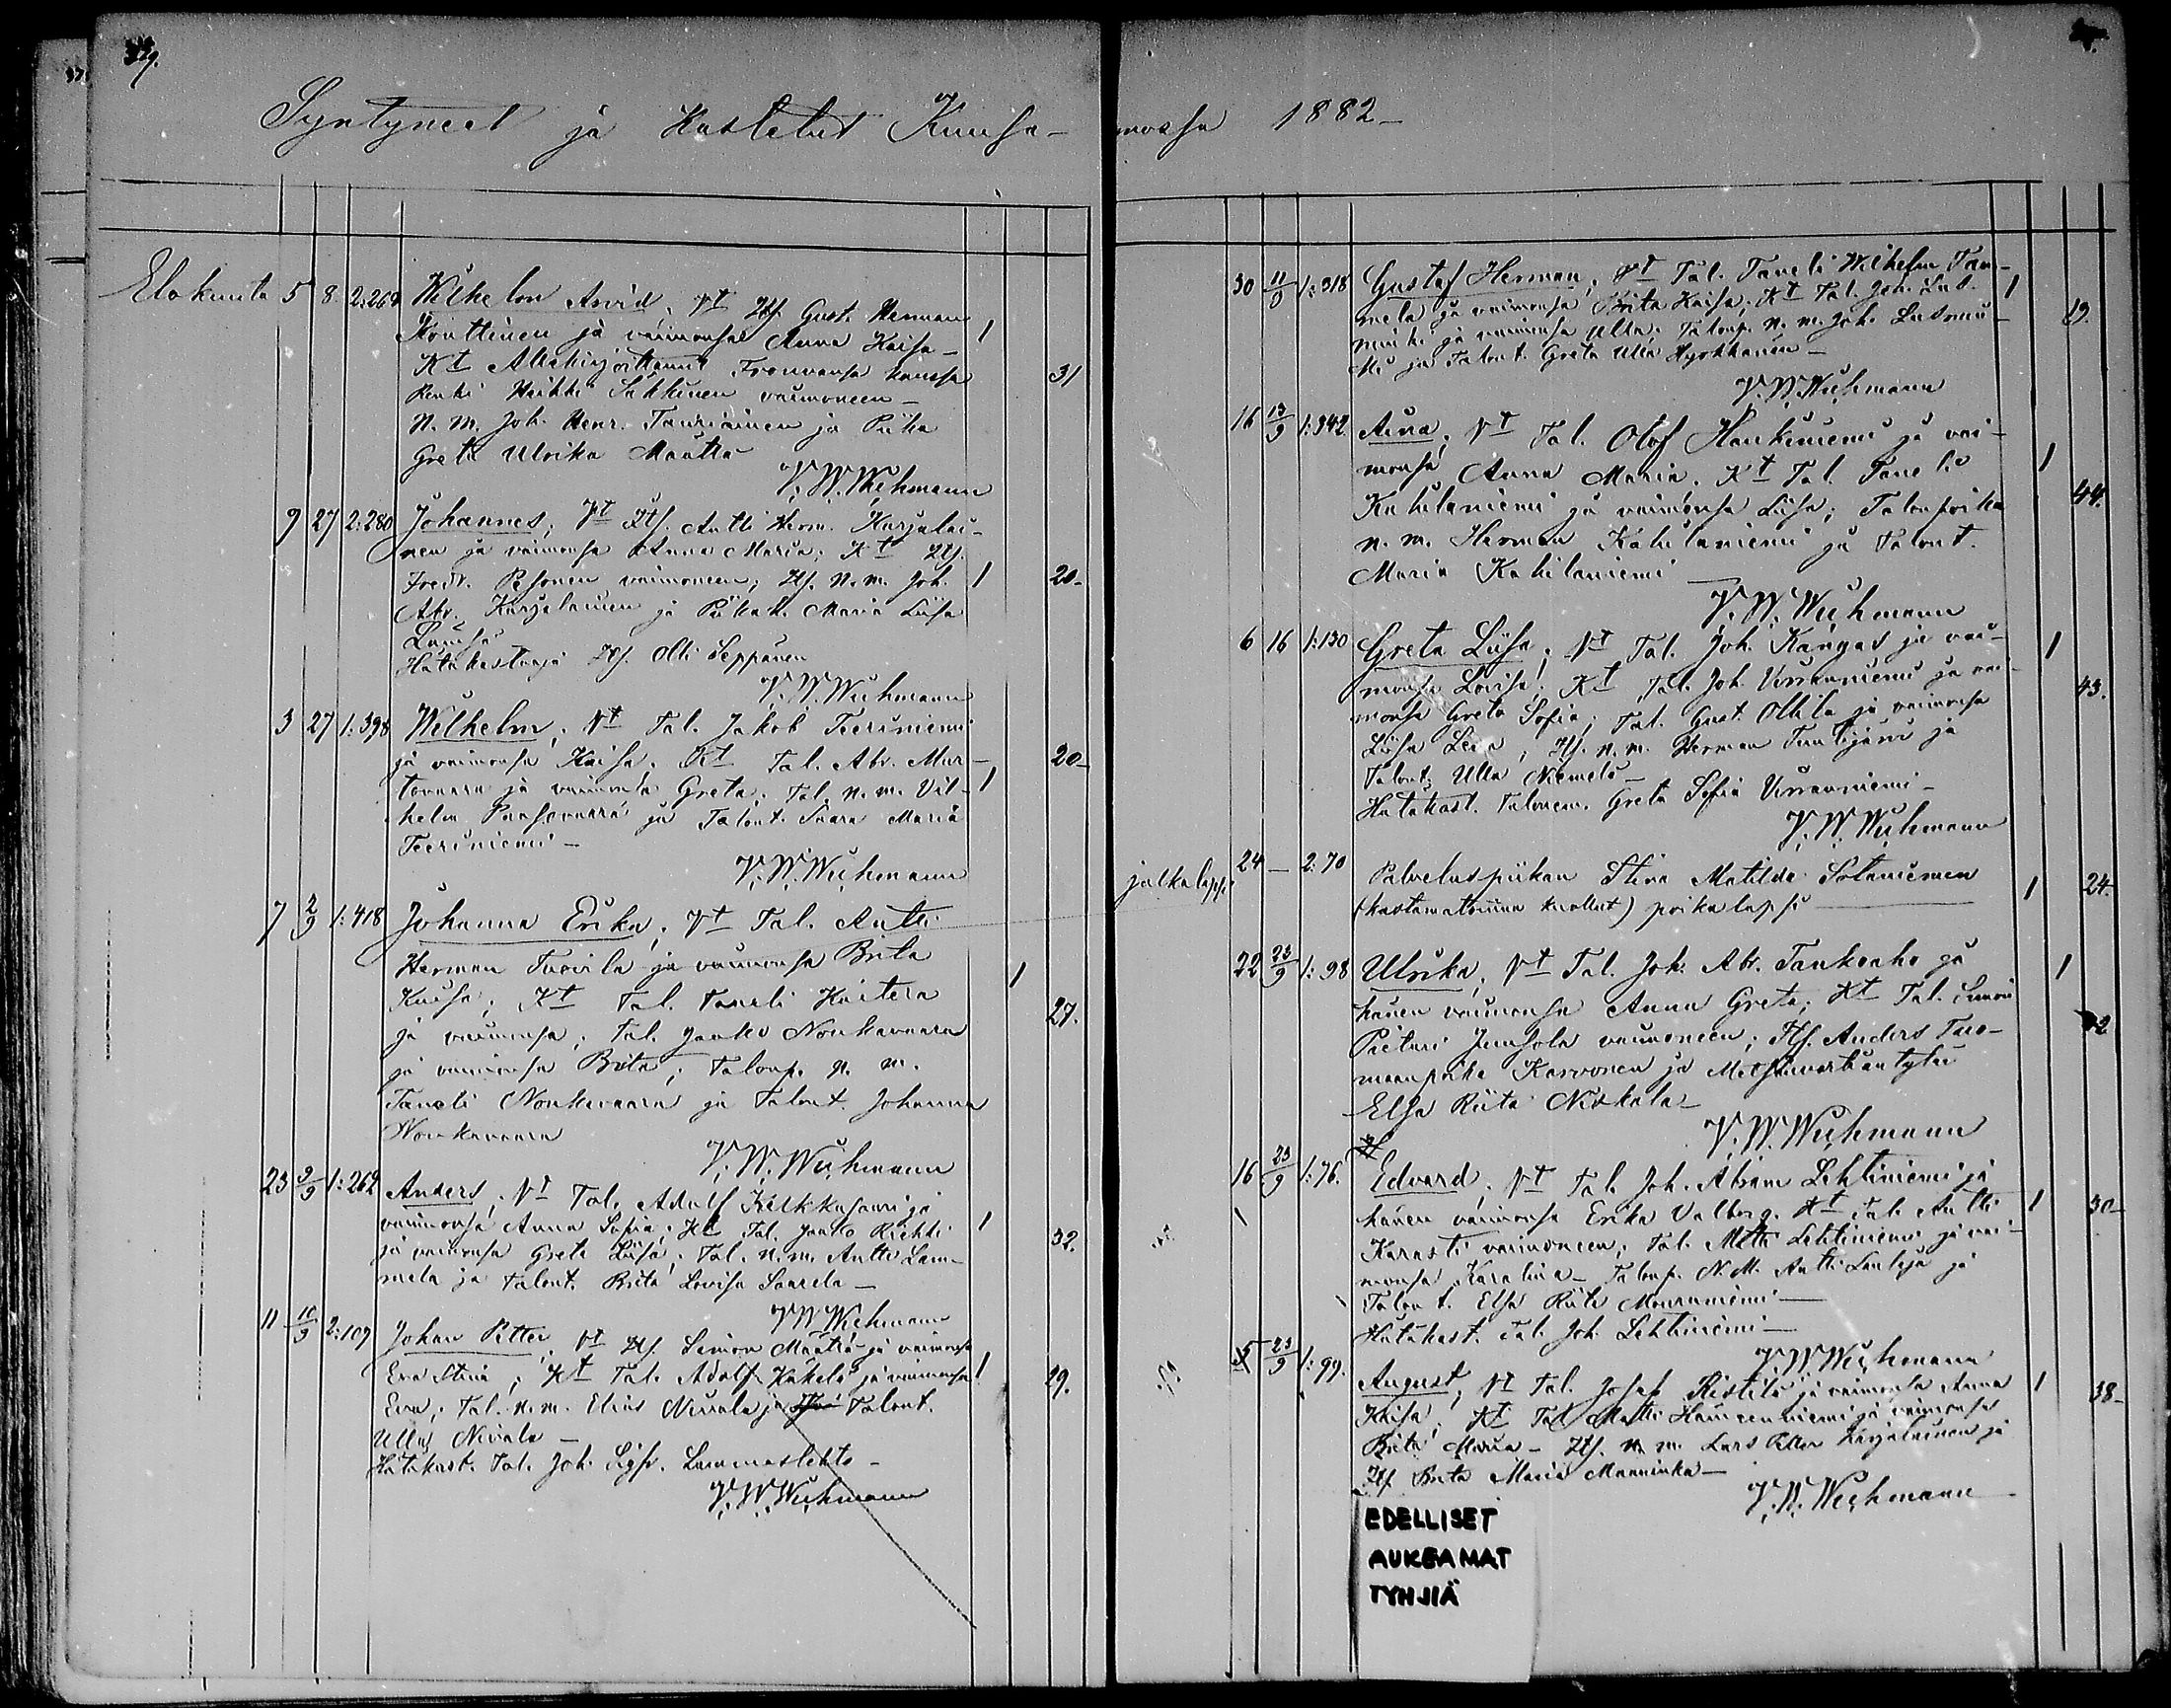 379.
Syntyneet ja Kastetut Kuusa-
Elokuuta 5 8. 2:264 Wilhelm Arvid, Vt Itf. Gust. Herman
Konttinen ja vaimonsa Anna Kaisa - 1
Kt Allakirjoittanut Frouvansa kanssa 31
Renki Heikki Säkkinen vaimoneen -
N. M. Joh. Henr. Tauriainen ja Piika
Greta Ulrika Määttä
V. W. Wichmann
9 27 2:280 Johannes, Vt Itf. Antti Herm. Karjalai-
nen ja vaimonsa Anna Maria; Kt Itf.
Fredr. Pesonen vaimoneen; Itf. N. m. Joh. 1 20-
Abr. Karjalainen ja Maria Liisa
Hätäkastaja Itf. Olli Seppänen
V. W. Wichmann
3 27 1:398 Wilhelm, Vt Tal. Jakob Teeriniemi
ja vaimonsa Kaisa. Kt Tal. Abr. Mur- 20-
tovaara ja vaimonsa Greta. Tal. n. m. Vil- 1
helm ja Talont. Saara Maria
Teeriniemi -
V. W. Wichmann
7 2/9 1:418 Johanna Erika, Vt Tal. Antti
Herman Tuovila ja vaimonsa Brita
Kaisa; Kt Tal. Taneli Kaitera 1
ja vaimonsa; Tal. Jaako Nonkavaara 27.
ja vaimonsa Brita; Talonp. n. m.
Taneli Nonkavaara ja Talont. Johanna
Nonkavaara
V. W. Wichmann
23 3/9 1:262 Anders, Vt Tal. Adolf ja
vaimonsa Anna Sofia; Kt Tal. Jaako Riekki 1
ja vaimonsa Greta Liisa; Tal. n. m. Antti Lam- 32.
mela ja Talont. Brita Lovisa Saarela -
V. W. Wichmann
11 10/9 2:109 Johan Petter, Vt Itf. Simon Määttä ja vaimonsa
Eva Stina; Kt Tal. Adolf Käkelä ja vaimonsa 1
Eva; Tal. n. m. Elias Nivala ja Talont. 29.
Ulla Nivala -
Hätäkast. Tal. Joh. Sigfr. Lammaslehto -
V. W. Wichmann
mossa 1882-
30 11/9 1:318 Gustaf Herman, Vt Tal. Taneli Wilhelm Tam-
mela ja vaimonsa Brita Kaisa; Kt Tal. Joh. 1
ja vaimonsa Ulla; Talonp. n. m. Joh. 19.
ja Talont. Greta Ulla
V. W. Wichmann
16 13/9 1:342 Aina, Vt Tal. Olof Haukiniemi ja vai-
monsa Anna Maria. Kt Tal. Taneli 1
Kahilaniemi ja vaimonsa Liisa; Talonpoika 44.
n. m. Herman Kahilaniemi ja Talont.
Maria Kahilaniemi
V. W. Wichmann
6 16 1:130 Greta Liisa; Vt Tal. Joh. Kangas ja vai- 1
monsa Lovisa; Kt Tal. Joh. Virranniemi ja vai-
monsa Greta Sofia; Tal. Gust. Ollila ja vaimonsa 43.
Liisa Leena; Itf. n. m. Herman ja
Talont. Ulla Niemelä -
Hätäkast. Talonem. Greta Sofia Virranniemi -
V. W. Wichmann
24 - 2:70 Palveluspiikan Stina Matilda Sotaniemen
(kastamatonna kuollut) poikalapsi 1 24.
22 23/9 1:98 Ulrika, Vt Tal. Joh. Abr. Tankoaho ja 1
hänen vaimonsa Anna Greta; Kt Tal. Simon
Pietari vaimoneen; Itf. Anders Tuo-
maanpoika Karvonen ja Metsänvartian tytär
Elsa Riita Niskala -
V. W. Wichmann
16 23/9 1:76. Edvard, Vt Tal. Joh. Abram Lehtiniemi ja
hänen vaimonsa Erika Valborg. Kt Tal. Antti 1 30-
Karasti vaimoneen; Tal. Matti Lehtiniemi ja vai-
monsa Karolina - Talonp. N. M. Antti Lauteja ja
Talont. Elsa Riita Mourunniemi -
Hätäkast. Tal. Joh. Lehtiniemi -
V. W. Wichmann
23/9 1:99. August, Vt Tal. Josef Ristilä ja vaimonsa Anna 1
Kaisa; Kt Tal. Matti Hämeenniemi ja vaimonsa 38-
Brita Maria - Itf. n. m. Lars Petter Karjalainen ja
Itf. Brita Maria Manninka -
V. W. Wichmann
EDELLISET
AUKEAMAT
TYHJIÄ